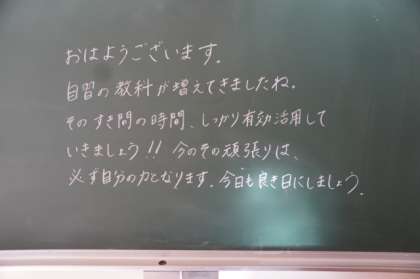 おはようございます.
自習の教科が増えてきましたね。
そのすき間の時間、しっかり有効活用して
いきましょう!! 今のその頑張りは、
必ず自分の力となります。今日も良き日にしましょう.